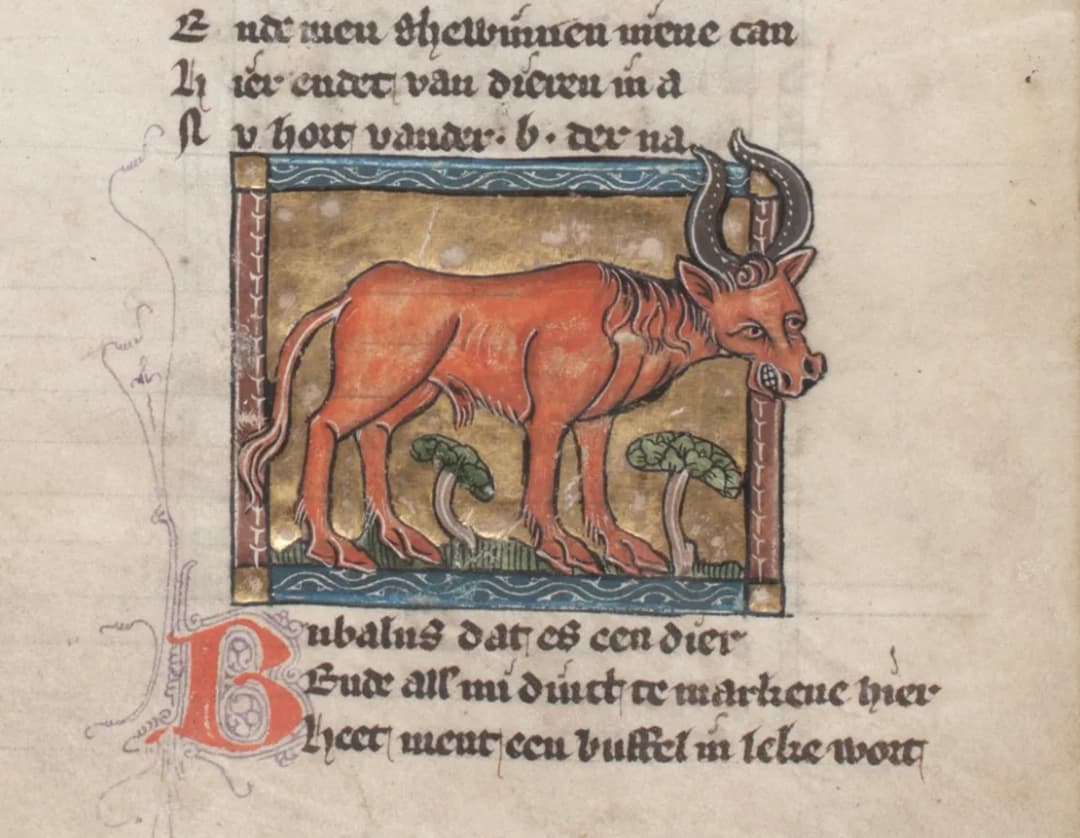 E nde men ghewinnen mene can
H ier endet van dieren in a
N v hort vander · b · der na
Bubalus dat es een dier
Ende als mi dinct te markene hier
Heet ment een buffel in leke wort